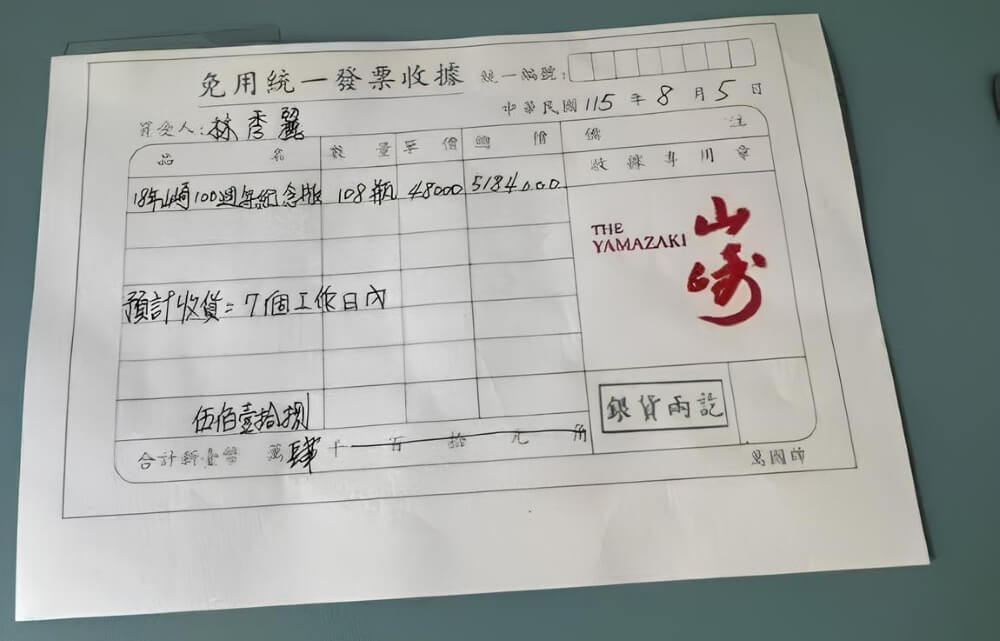 免用統一發票收據 統一編號:
中華民國 115 年 8 月 5 日
買受人:林秀麗
品名 數量 單價 總價 備註
收據專用章
18年山崎100週年紀念版 108瓶 48000 5184000
THE YAMAZAKI 山崎
預計收貨=7個工作日內
銀貨兩訖
伍佰壹拾捌
合計新台幣 萬肆千百拾元